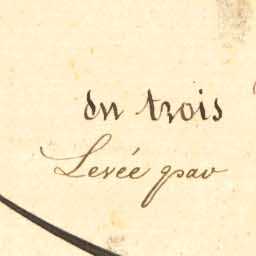 du trois
Levée par